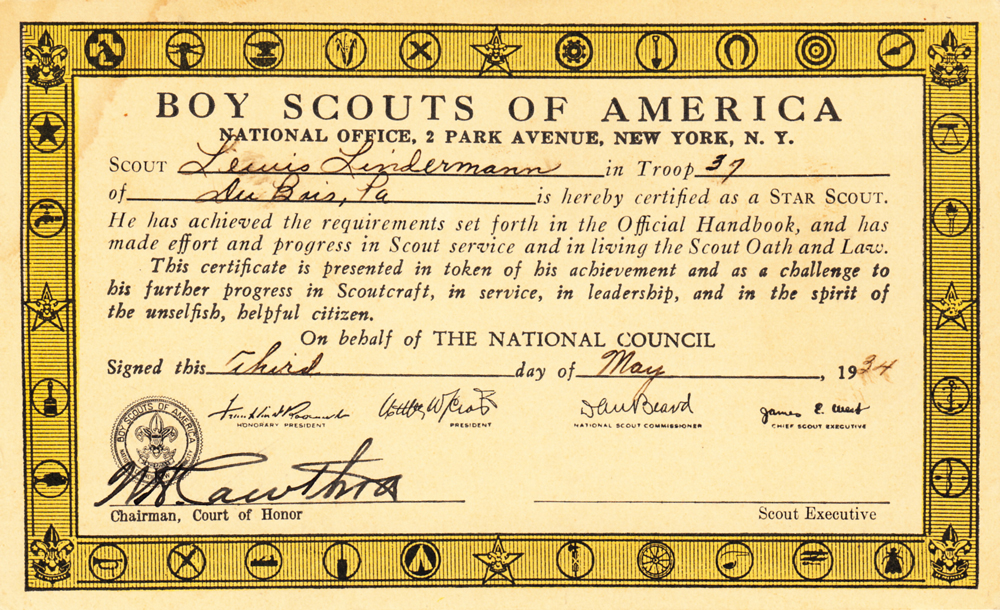 BOY SCOUTS OF AMERICA
NATIONAL OFFICE, 2 PARK AVENUE, NEW YORK, N. Y.
SCOUT Lewis Lindermann in Troop 37
of Du Bois, Pa is hereby certified as a STAR SCOUT.
He has achieved the requirements set forth in the Official Handbook, and has
made effort and progress in Scout service and in living the Scout Oath and Law.
This certificate is presented in token of his achievement and as a challenge to
his further progress in Scoutcraft, in service, in leadership, and in the spirit of
the unselfish, helpful citizen.
On behalf of THE NATIONAL COUNCIL
Signed this Third day of May, 1934
BOY SCOUTS OF AMERICA
Franklin D Roosevelt Walter W Head Dan Beard James E. West
HONORARY PRESIDENT PRESIDENT NATIONAL SCOUT COMMISSIONER CHIEF SCOUT EXECUTIVE
Chairman, Court of Honor Scout Executive